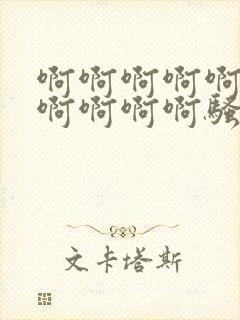 啊啊啊啊啊
啊啊啊啊骚
文卡塔斯